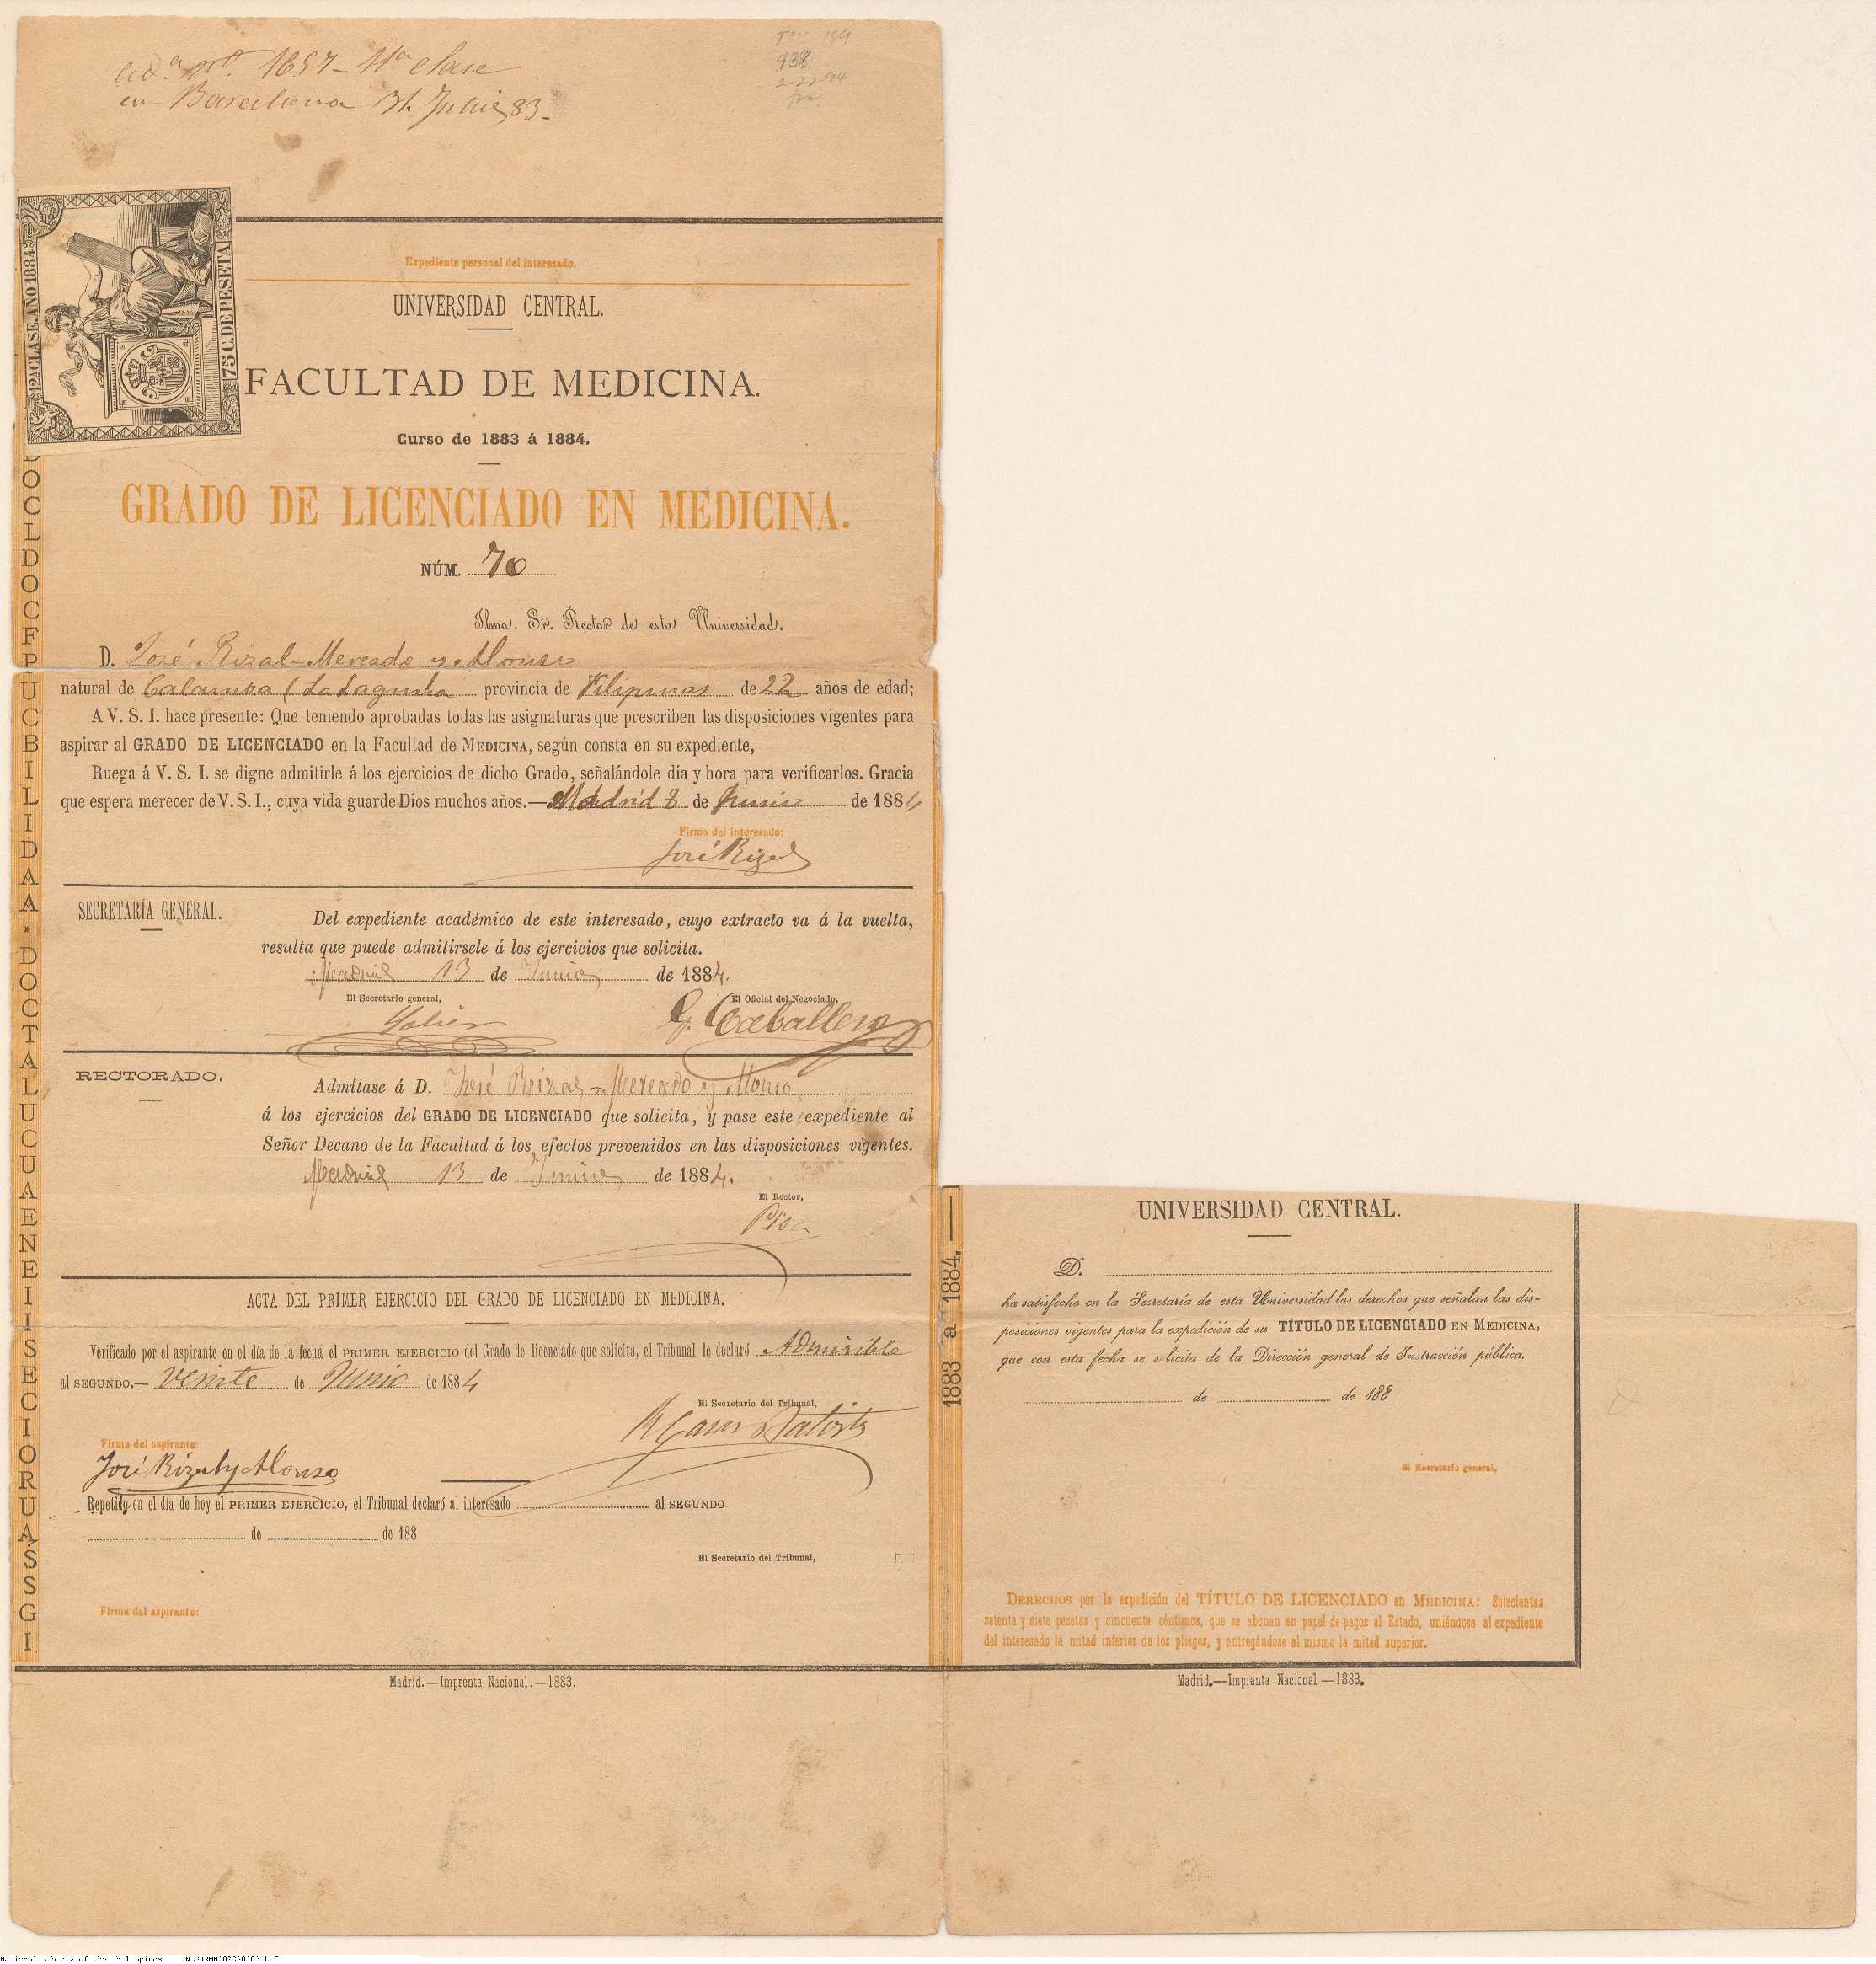 1657 - 11ª clase
en Barcelona 31 Julio 83-
938
12ª CLASE. AÑO 1884
75 C. DE PESETA
Expediente personal del interesado.
UNIVERSIDAD CENTRAL.
FACULTAD DE MEDICINA.
Curso de 1883 á 1884.
GRADO DE LICENCIADO EN MEDICINA.
NÚM. 70
Ilmo. Sr. Rector de esta Universidad.
D. José Rizal-Mercado y Alonso
natural de Calamba (La Laguna provincia de Filipinas de 22 años de edad;
A V. S. I. hace presente: Que teniendo aprobadas todas las asignaturas que prescriben las disposiciones vigentes para
aspirar al GRADO DE LICENCIADO en la Facultad de MEDICINA, según consta en su expediente,
Ruega á V. S. I. se digne admitirle á los ejercicios de dicho Grado, señalándole día y hora para verificarlos. Gracia
que espera merecer de V. S. I., cuya vida guarde Dios muchos años.—Madrid 8 de Junio de 1884
Firma del interesado:
José Rizal
SECRETARÍA GENERAL.
Del expediente académico de este interesado, cuyo extracto va á la vuelta,
resulta que puede admitírsele á los ejercicios que solicita.
Madrid 13 de Junio de 1884.
El Secretario general,
El Oficial del Negociado,
G. Caballero
RECTORADO.
Admítase á D. José Rizal-Mercado y Alonso
á los ejercicios del GRADO DE LICENCIADO que solicita, y pase este expediente al
Señor Decano de la Facultad á los efectos prevenidos en las disposiciones vigentes.
Madrid 13 de Junio de 1884.
El Rector,
ACTA DEL PRIMER EJERCICIO DEL GRADO DE LICENCIADO EN MEDICINA.
Verificado por el aspirante en el día de la fecha el PRIMER EJERCICIO del Grado de licenciado que solicita, el Tribunal le declaró Admisible
al SEGUNDO.— Veinte de Junio de 1884
El Secretario del Tribunal,
Firma del aspirante:
José Rizal y Alonso
Repetido en el día de hoy el PRIMER EJERCICIO, el Tribunal declaró al interesado al SEGUNDO
de de 188
El Secretario del Tribunal,
Firma del aspirante:
Madrid.—Imprenta Nacional.—1883.
OCLDOCFPUCBILIDAA * DOCTALUCUAENEIISECIORUASSGI
1883 a 1884.
UNIVERSIDAD CENTRAL.
D.
ha satisfecho en la Secretaría de esta Universidad los derechos que señalan las dis-
posiciones vigentes para la expedición de su TÍTULO DE LICENCIADO EN MEDICINA,
que con esta fecha se solicita de la Dirección general de Instrucción pública.
de de 188
El Secretario general,
DERECHOS por la expedición del TÍTULO DE LICENCIADO en MEDICINA: Setecientas
setenta y siete pesetas y cincuenta céntimos, que se abonan en papel de pagos al Estado, uniéndose al expediente
del interesado la mitad inferior de los pliegos, y entregándose al mismo la mitad superior.
Madrid.—Imprenta Nacional—1883.